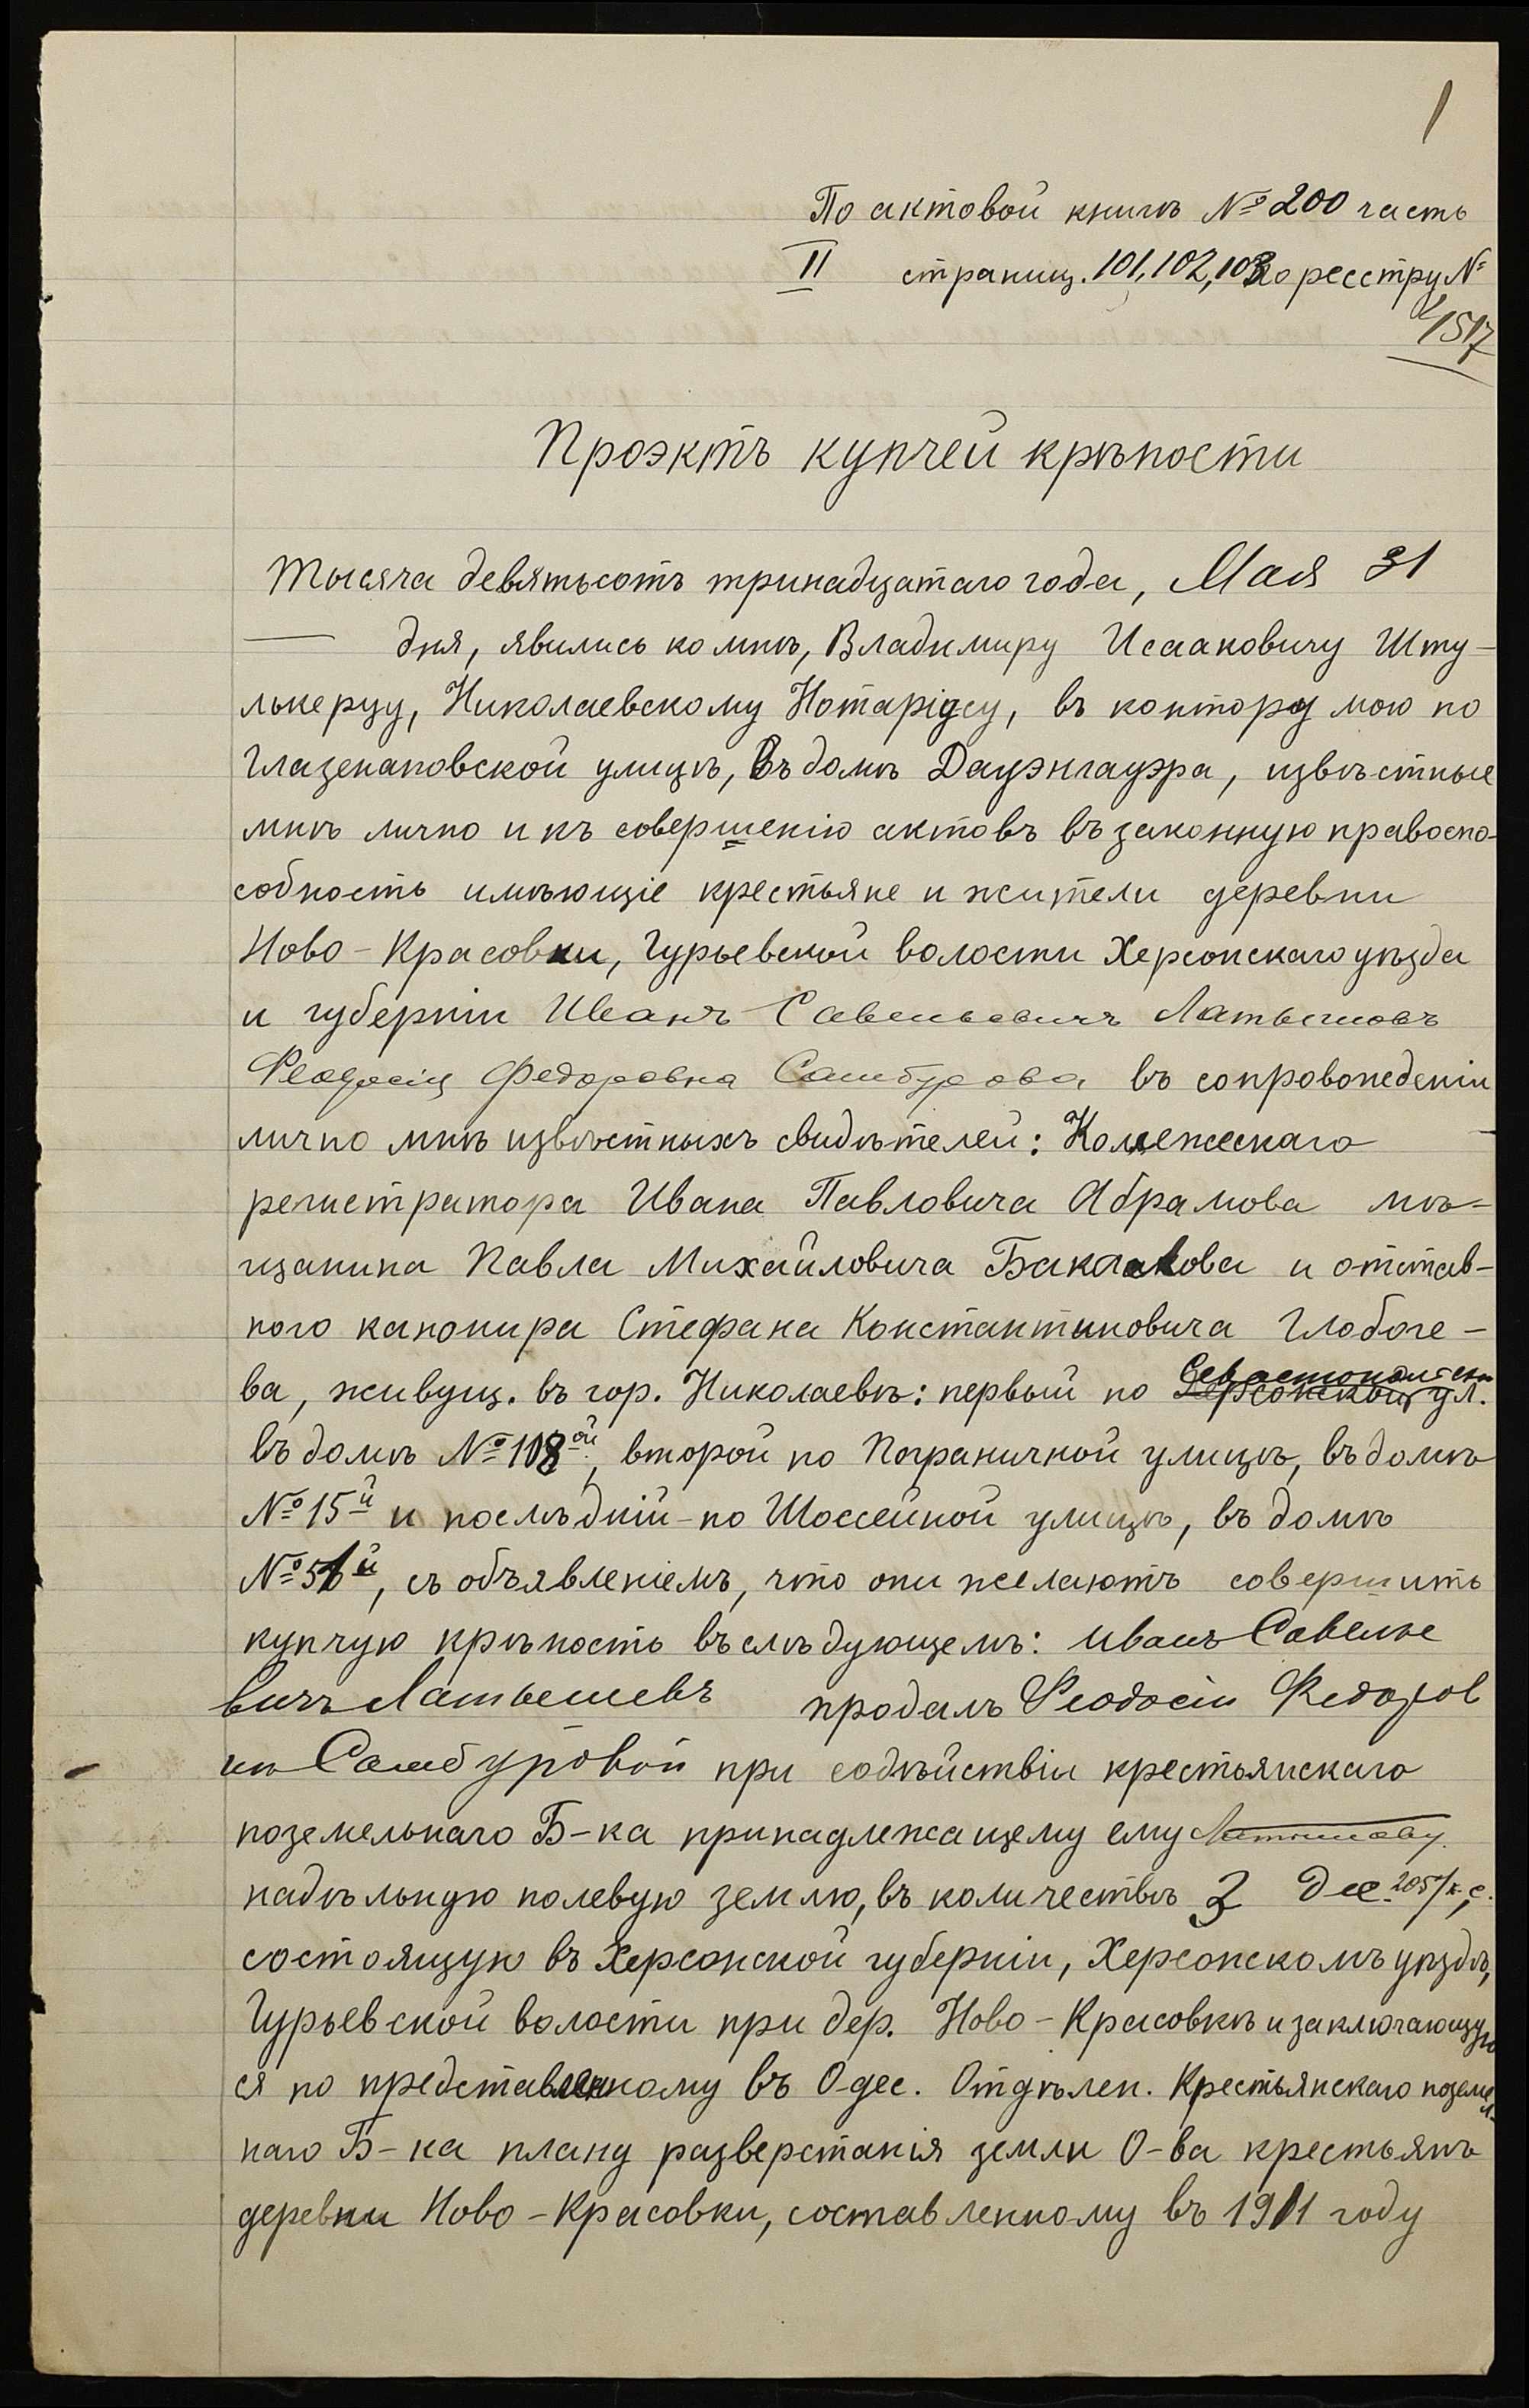 1
По актовой книгѣ № 200 часть
II страниц. 101, 102, 103 по реестру №
1517
Проэктъ купчей крѣпости
Тысяча девятьсотъ тринадцатаго года, Мая 31
дня, явились ко мнѣ, Владимиру Исааковичу Шту-
лькерцу, Николаевскому Нотаріусу, въ контору мою по
Глазенаповской улицѣ, въ домѣ Дауэнгауэра, извѣстные
мнѣ лично и къ совершенію актовъ въ законную правоспо-
собность имѣющіе крестьяне и жители деревни
Ново-Красовки, Гурьевской волости Херсонскаго уѣзда
и губерніи Иванъ Савельевичъ Латышовъ
Феодосія Федоровна Самбурова въ сопровожденіи
лично мнѣ извѣстныхъ свидѣтелей: Колежскаго
регистратора Ивана Павловича Абрамова мѣ-
щанина Павла Михайловича Баклакова и отстав-
ного канонира Стефана Константиновича Глобоче-
ва, живущ. въ гор. Николаевѣ: первый по Севастопольской Херсонской ул.
въ домѣ № 108ой, второй по Пограничной улицѣ, въ домѣ
№ 15й и послѣдній - по Шоссейной улицѣ, въ домѣ
№ 51й, съ объявленіемъ, что они желаютъ совершить
купчую крѣпость въ слѣдующемъ: Иванъ Савелье
вичъ Латышевъ продалъ Феодосіи Федоров
нѣ Самбуровой при содѣйствіи крестьянскаго
поземельнаго Б-ка принадлежащему ему Латышову
надѣльную полевую землю, въ количествѣ 3 дес. 205 к. с.
состоящую въ Херсонской губерніи, Херсонскомъ уѣздѣ,
Гурьевской волости при дер. Ново-Красовкѣ и заключающую
ся по представленному въ Одес. Отдѣлен. Крестьянскаго поземел-
наго Б-ка плану разверстанія земли О-ва крестьянъ
деревни Ново-Красовки, составленному въ 1911 году